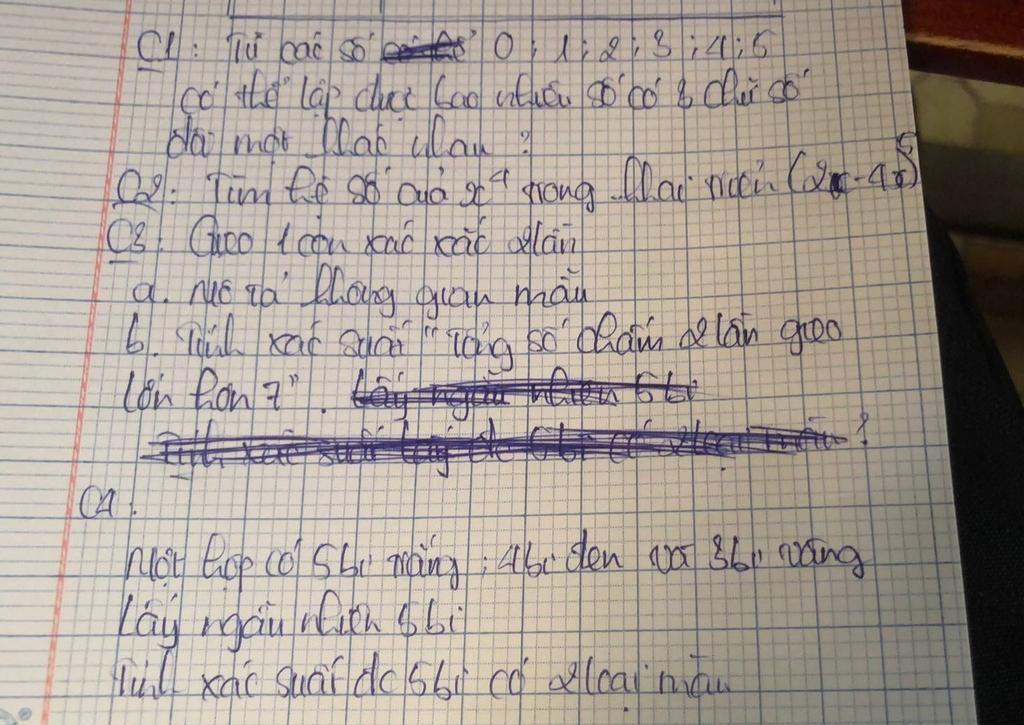 C1: Từ các số 0; 1; 2; 3; 4; 5
có thể lập được bao nhiêu số có 3 chữ số
đôi một khác nhau ?
C2: Tìm hệ số của x⁴ trong khai triển (2x-4)⁵
C3: Gieo 1 con xúc xắc 2 lần
a. Mô tả không gian mẫu
b. Tính xác suất "Tổng số chấm 2 lần gieo
lớn hơn 7".
C4:
Một hộp có 5 bi trắng; 4 bi đen và 3 bi vàng
Lấy ngẫu nhiên 5 bi
Tính xác suất đc 5 bi có 2 loại màu